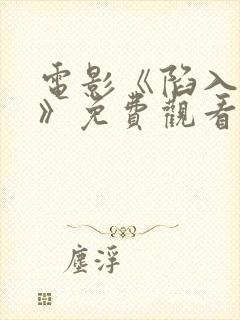 電影《陷入
》免費觀看
塵浮